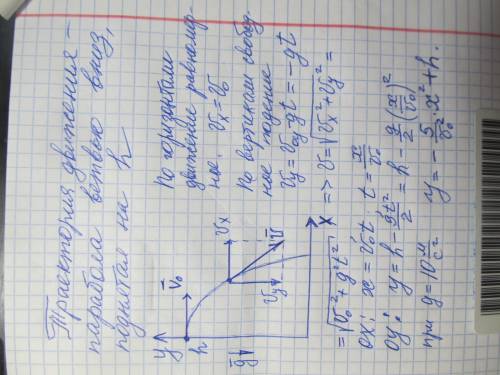 Траектория движения –
парабола ветвью вниз,
поднятая на h
y
h
V̄₀
ḡ
V̄x
V̄y
V̄
x
По горизонтали
движение равномер-
ное. Vx = V₀
По вертикали свобод-
ное падение
Vy = V₀y - gt = -gt
=> V = √(Vx² + Vy²) =
= √(V₀² + g²t²);
ox: x = V₀t t = x/V₀
oy: y = h - gt²/2 = h - g/2 (x/V₀)²
при g = 10 м/с² y = - 5/V₀² · x² + h.